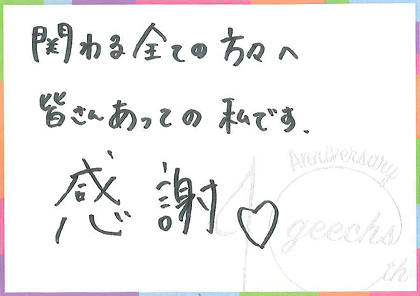 関わる全ての方々へ
皆さんあっての私です.
感謝♡
Anniversary
10
geechs
th